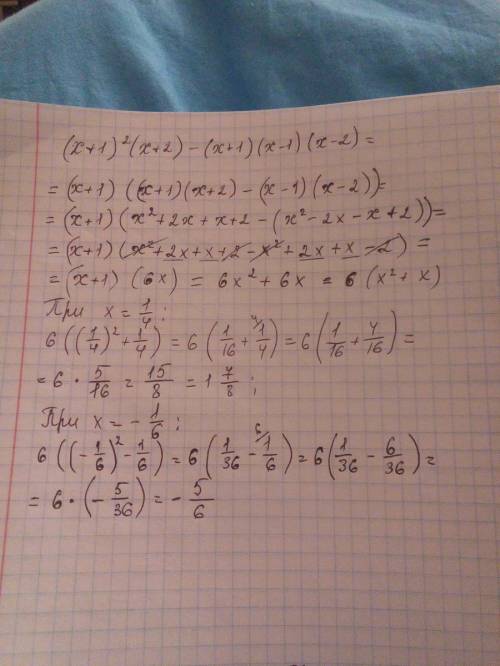 (x+1)²(x+2) - (x+1)(x-1)(x-2) =
= (x+1) ((x+1)(x+2) - (x-1)(x-2)) =
= (x+1) (x²+2x+x+2 - (x²-2x-x+2)) =
= (x+1) (x²+2x+x+2-x²+2x+x-2) =
= (x+1) (6x) = 6x²+6x = 6 (x²+x)
При x = 1/4 :
6 ((1/4)² + 1/4) = 6 (1/16 + ⁴/ 1/4) = 6 (1/16 + 4/16) =
= 6 · 5/16 = 15/8 = 1 7/8 ;
При x = - 1/6 :
6 ((-1/6)² - 1/6) = 6 (1/36 - ⁶/ 1/6) = 6 (1/36 - 6/36) =
= 6 · (- 5/36) = - 5/6